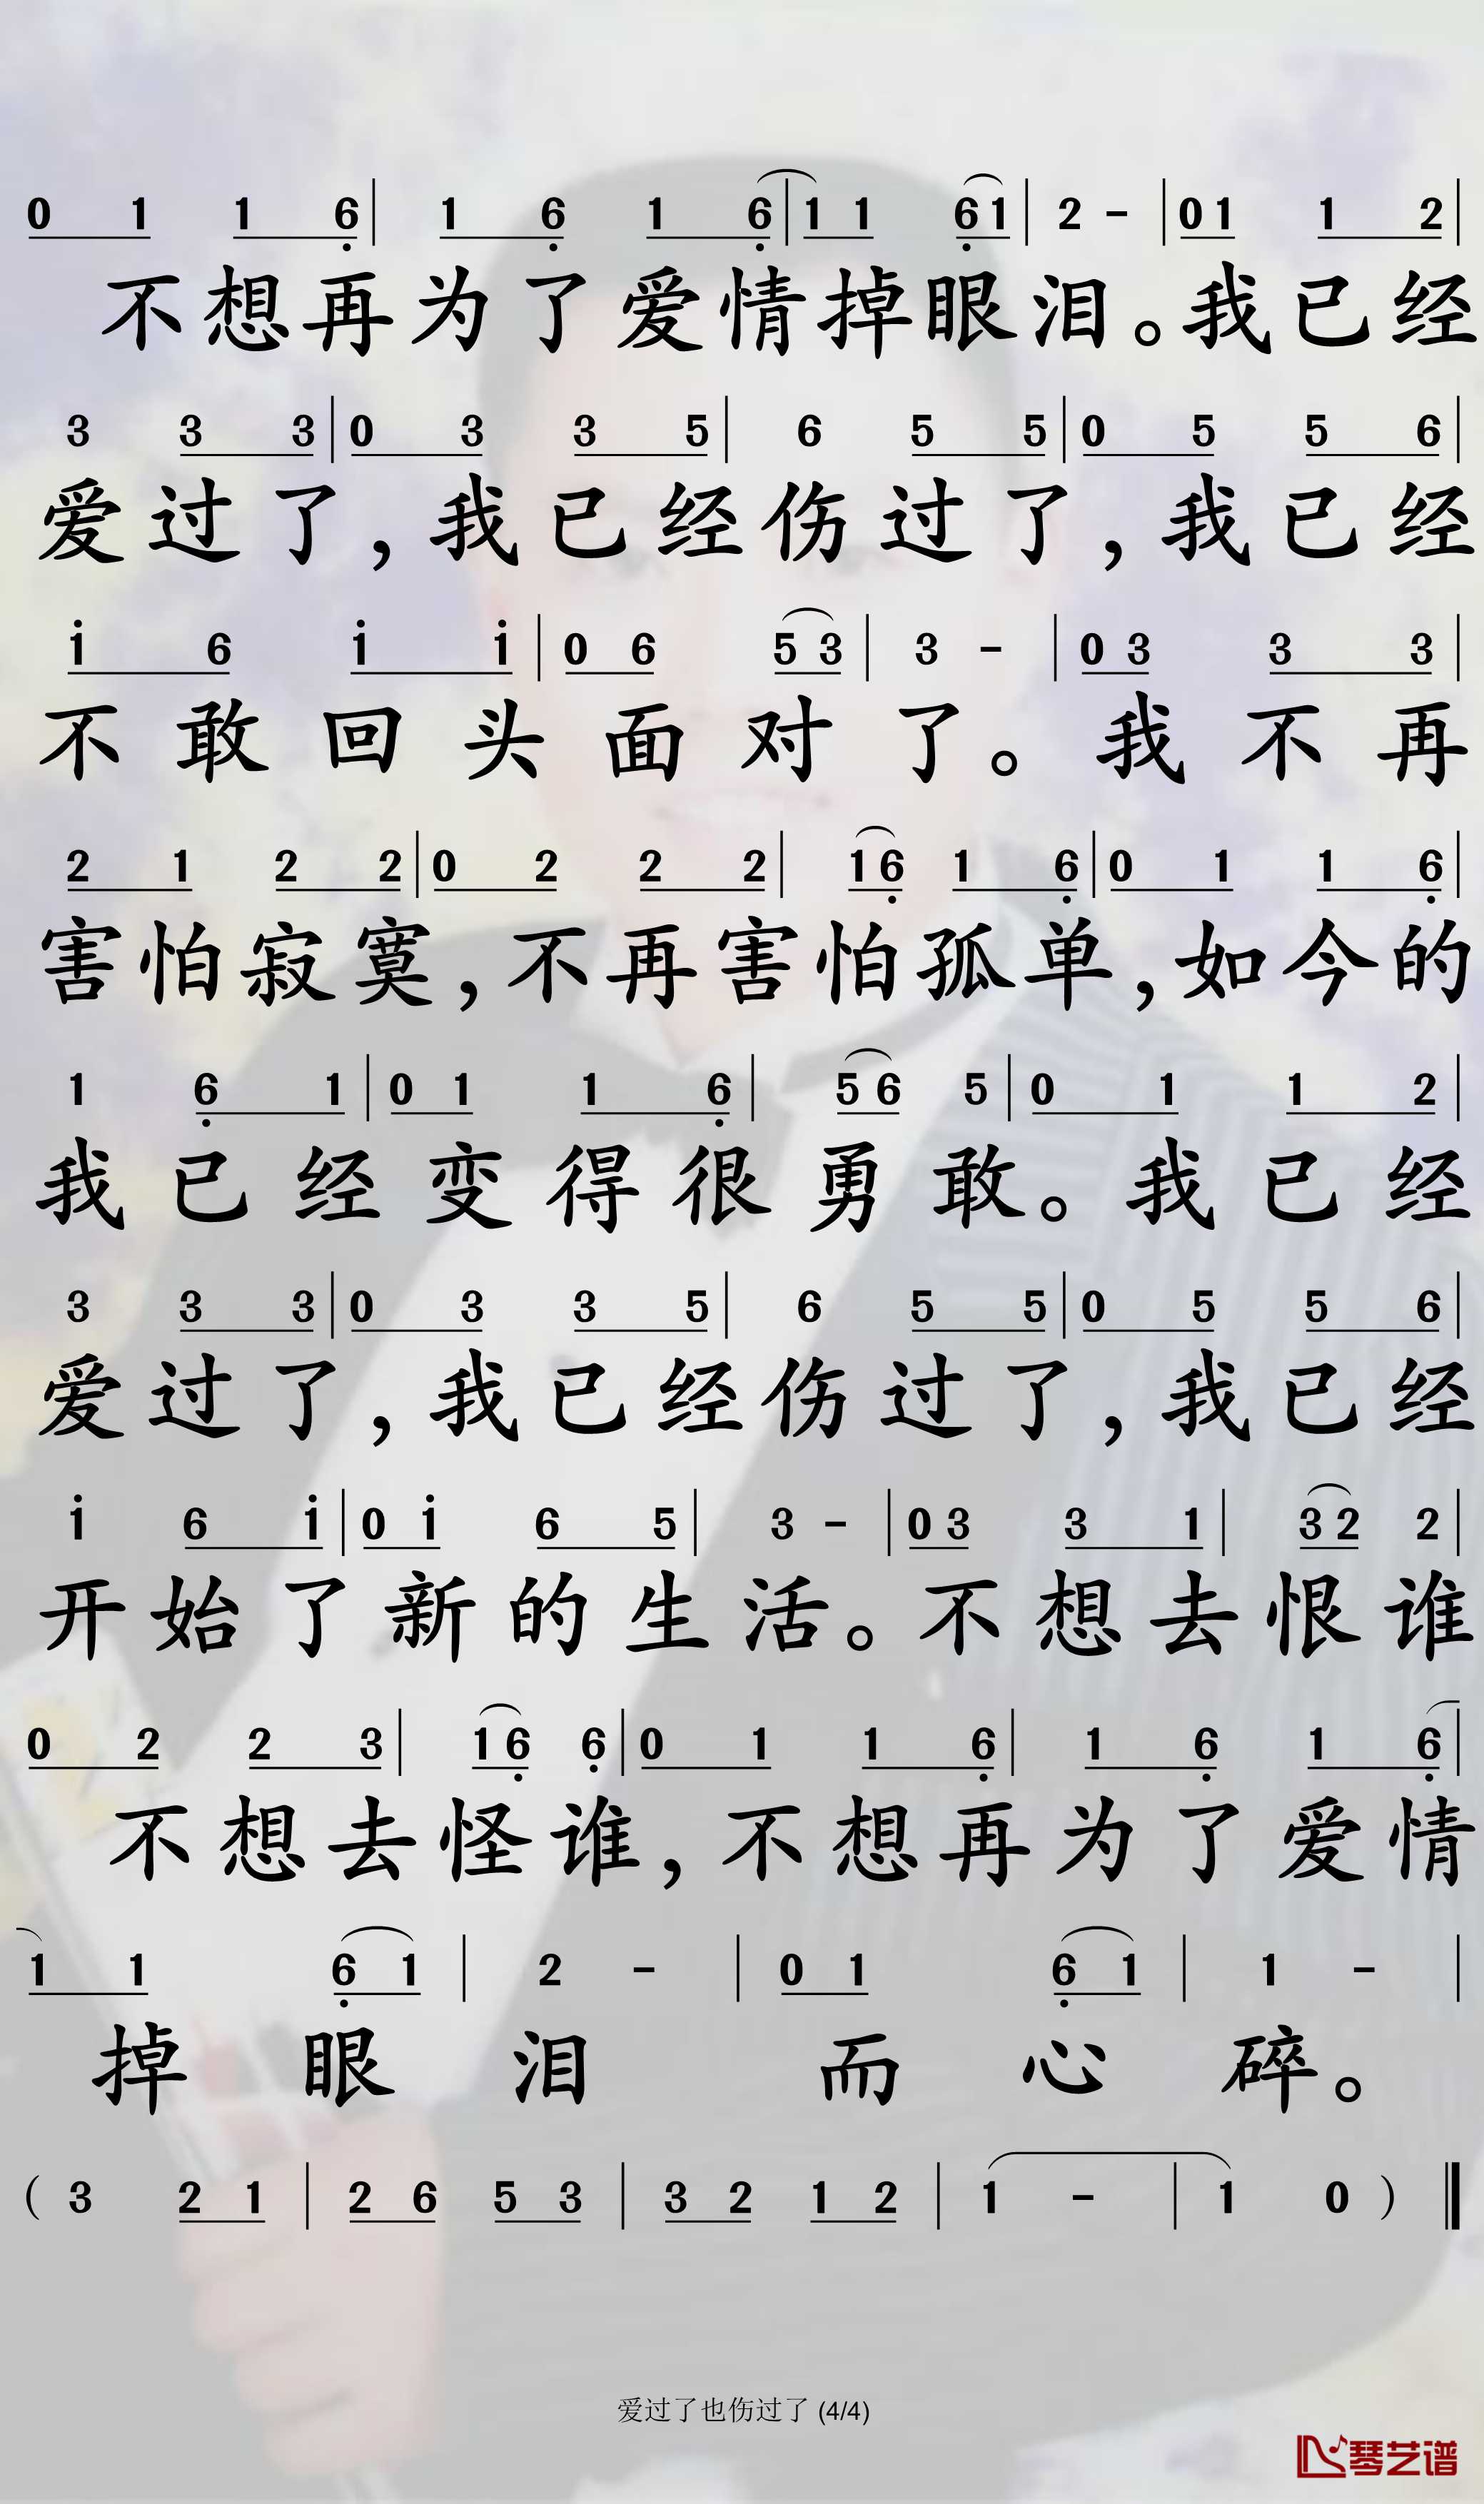 0 1 1 6 | 1 6 1 6 | 1 1 6 1 | 2 - | 0 1 1 2 |
不想再为了爱情掉眼泪。我已经
3 3 3 | 0 3 3 5 | 6 5 5 | 0 5 5 6 |
爱过了，我已经伤过了，我已经
i 6 i i | 0 6 5 3 | 3 - | 0 3 3 3 |
不敢回头面对了。我不再
2 1 2 2 | 0 2 2 2 | 1 6 1 6 | 0 1 1 6 |
害怕寂寞，不再害怕孤单，如今的
1 6 1 | 0 1 1 6 | 5 6 5 | 0 1 1 2 |
我已经变得很勇敢。我已经
3 3 3 | 0 3 3 5 | 6 5 5 | 0 5 5 6 |
爱过了，我已经伤过了，我已经
i 6 i | 0 i 6 5 | 3 - | 0 3 3 1 | 3 2 2 |
开始了新的生活。不想去恨谁
0 2 2 3 | 1 6 6 | 0 1 1 6 | 1 6 1 6 |
不想去怪谁，不想再为了爱情
1 1 6 1 | 2 - | 0 1 6 1 | 1 - |
掉眼泪而心碎。
（ 3 2 1 | 2 6 5 3 | 3 2 1 2 | 1 - | 1 0 ）
爱过了也伤过了 (4/4)
琴艺谱